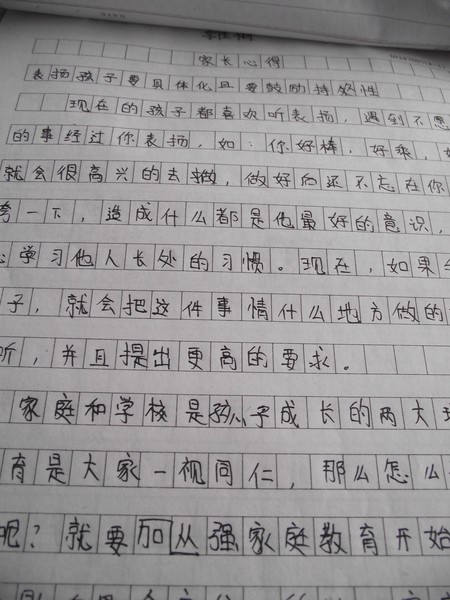 家长心得
表扬孩子要具体化且要鼓励持续性
现在的孩子都喜欢听表扬，遇到不愿
的事经过你表扬，如：你好棒，好乖，
就会很高兴的去做，做好后还不忘在你
夸一下，造成什么都是他最好的意识，
学习他人长处的习惯。现在，如果
子，就会把这件事情什么地方做的
听，并且提出更高的要求。
家庭和学校是孩子成长的两大
育是大家一视同仁，那么怎么
呢？就要加从强家庭教育开始